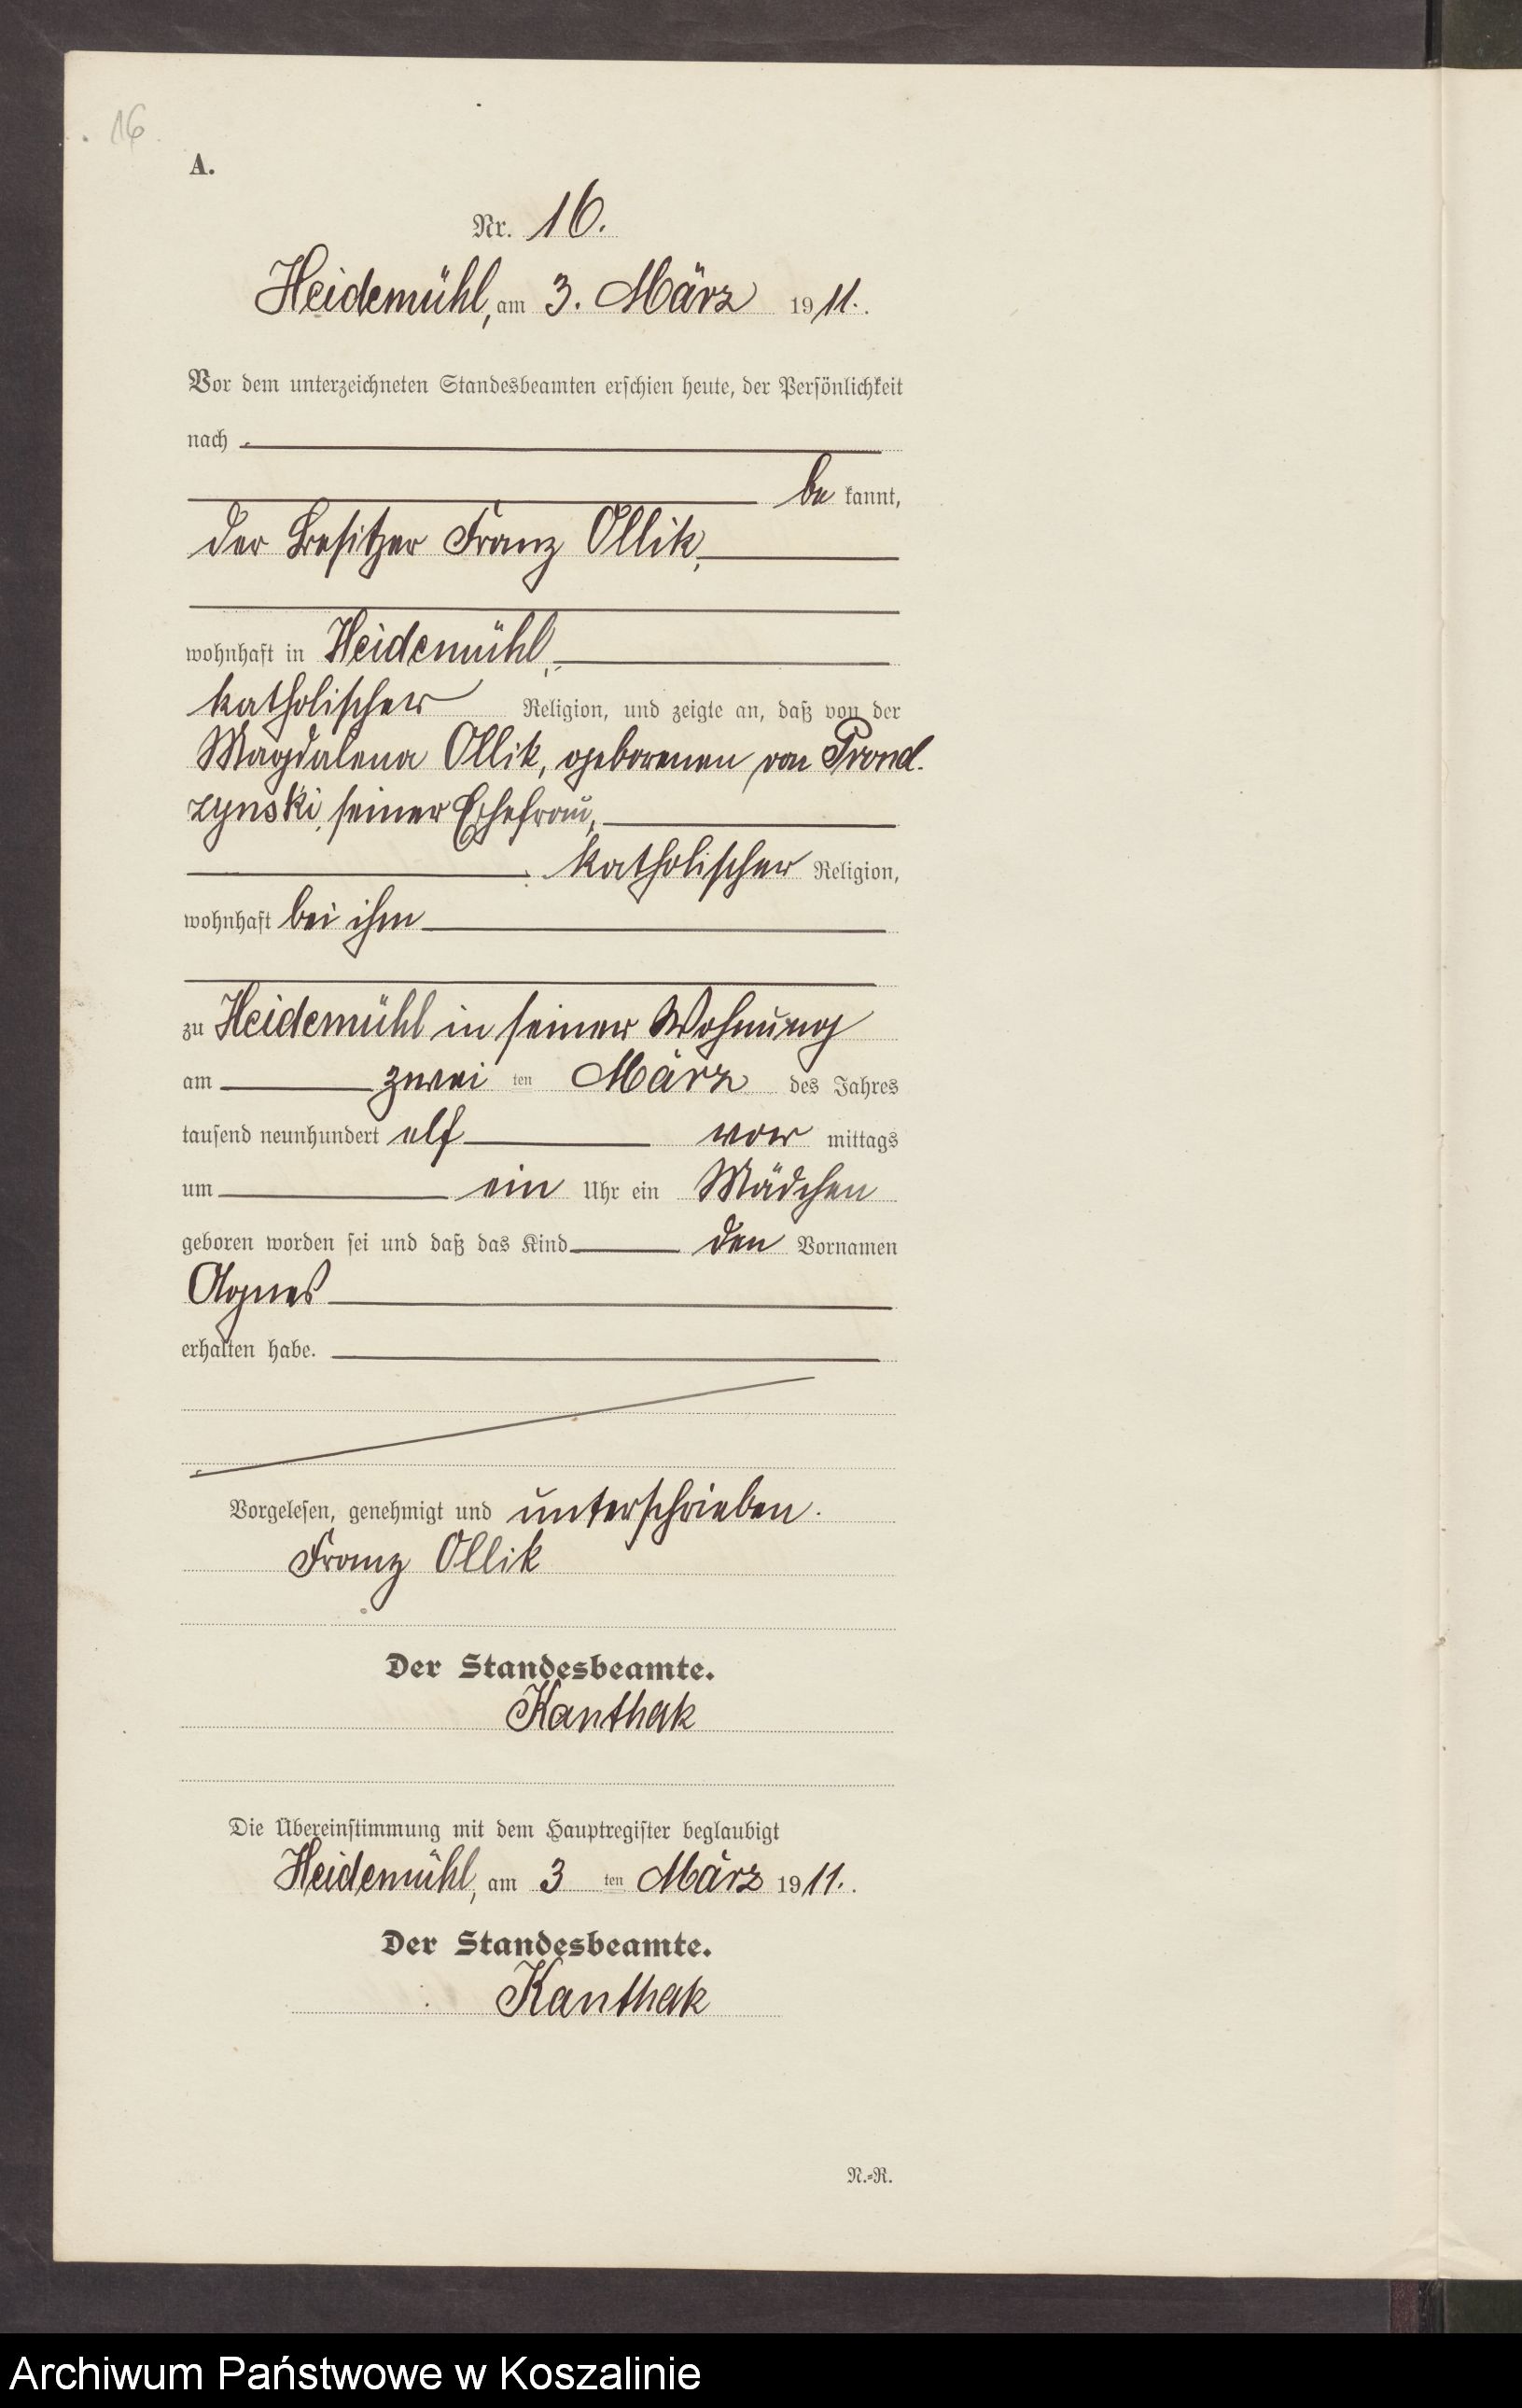 16
A.
Nr. 16.
Heidemühl, am 3. März 1911.
Vor dem unterzeichneten Standesbeamten erschien heute, der Persönlichkeit
nach
be kannt,
der Besitzer Franz Ollik,
wohnhaft in Heidemühl,
katholischer Religion, und zeigte an, daß von der
Magdalena Ollik, geborenen von Prond-
zynski, seiner Ehefrau,
katholischer Religion,
wohnhaft bei ihm
zu Heidemühl in seiner Wohnung
am zwei ten März des Jahres
tausend neunhundert elf vor mittags
um ein Uhr ein Mädchen
geboren worden sei und daß das Kind den Vornamen
Agnes
erhalten habe.
Vorgelesen, genehmigt und unterschrieben.
Franz Ollik
Der Standesbeamte.
Kanthak
Die Übereinstimmung mit dem Hauptregister beglaubigt
Heidemühl, am 3 ten März 1911.
Der Standesbeamte.
Kanthak
N.-R.
Archiwum Państwowe w Koszalinie